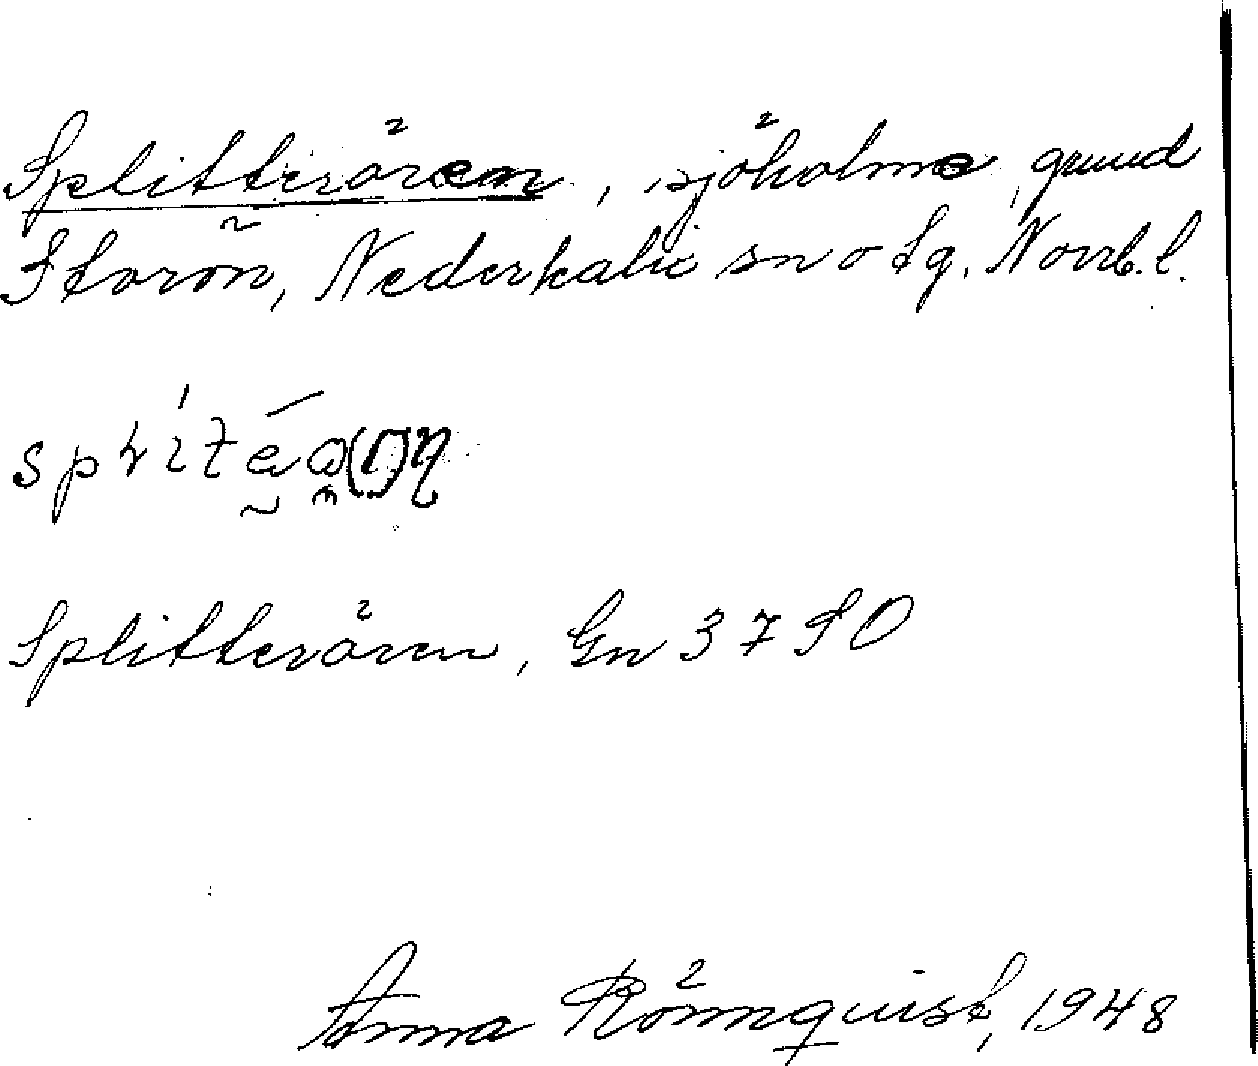 Splitterören, sjöholme, grund
Storön, Nederkalix sn o tg, Norrb. l.
Splitterören, Gn 3790
Anna Rönnquist, 1948